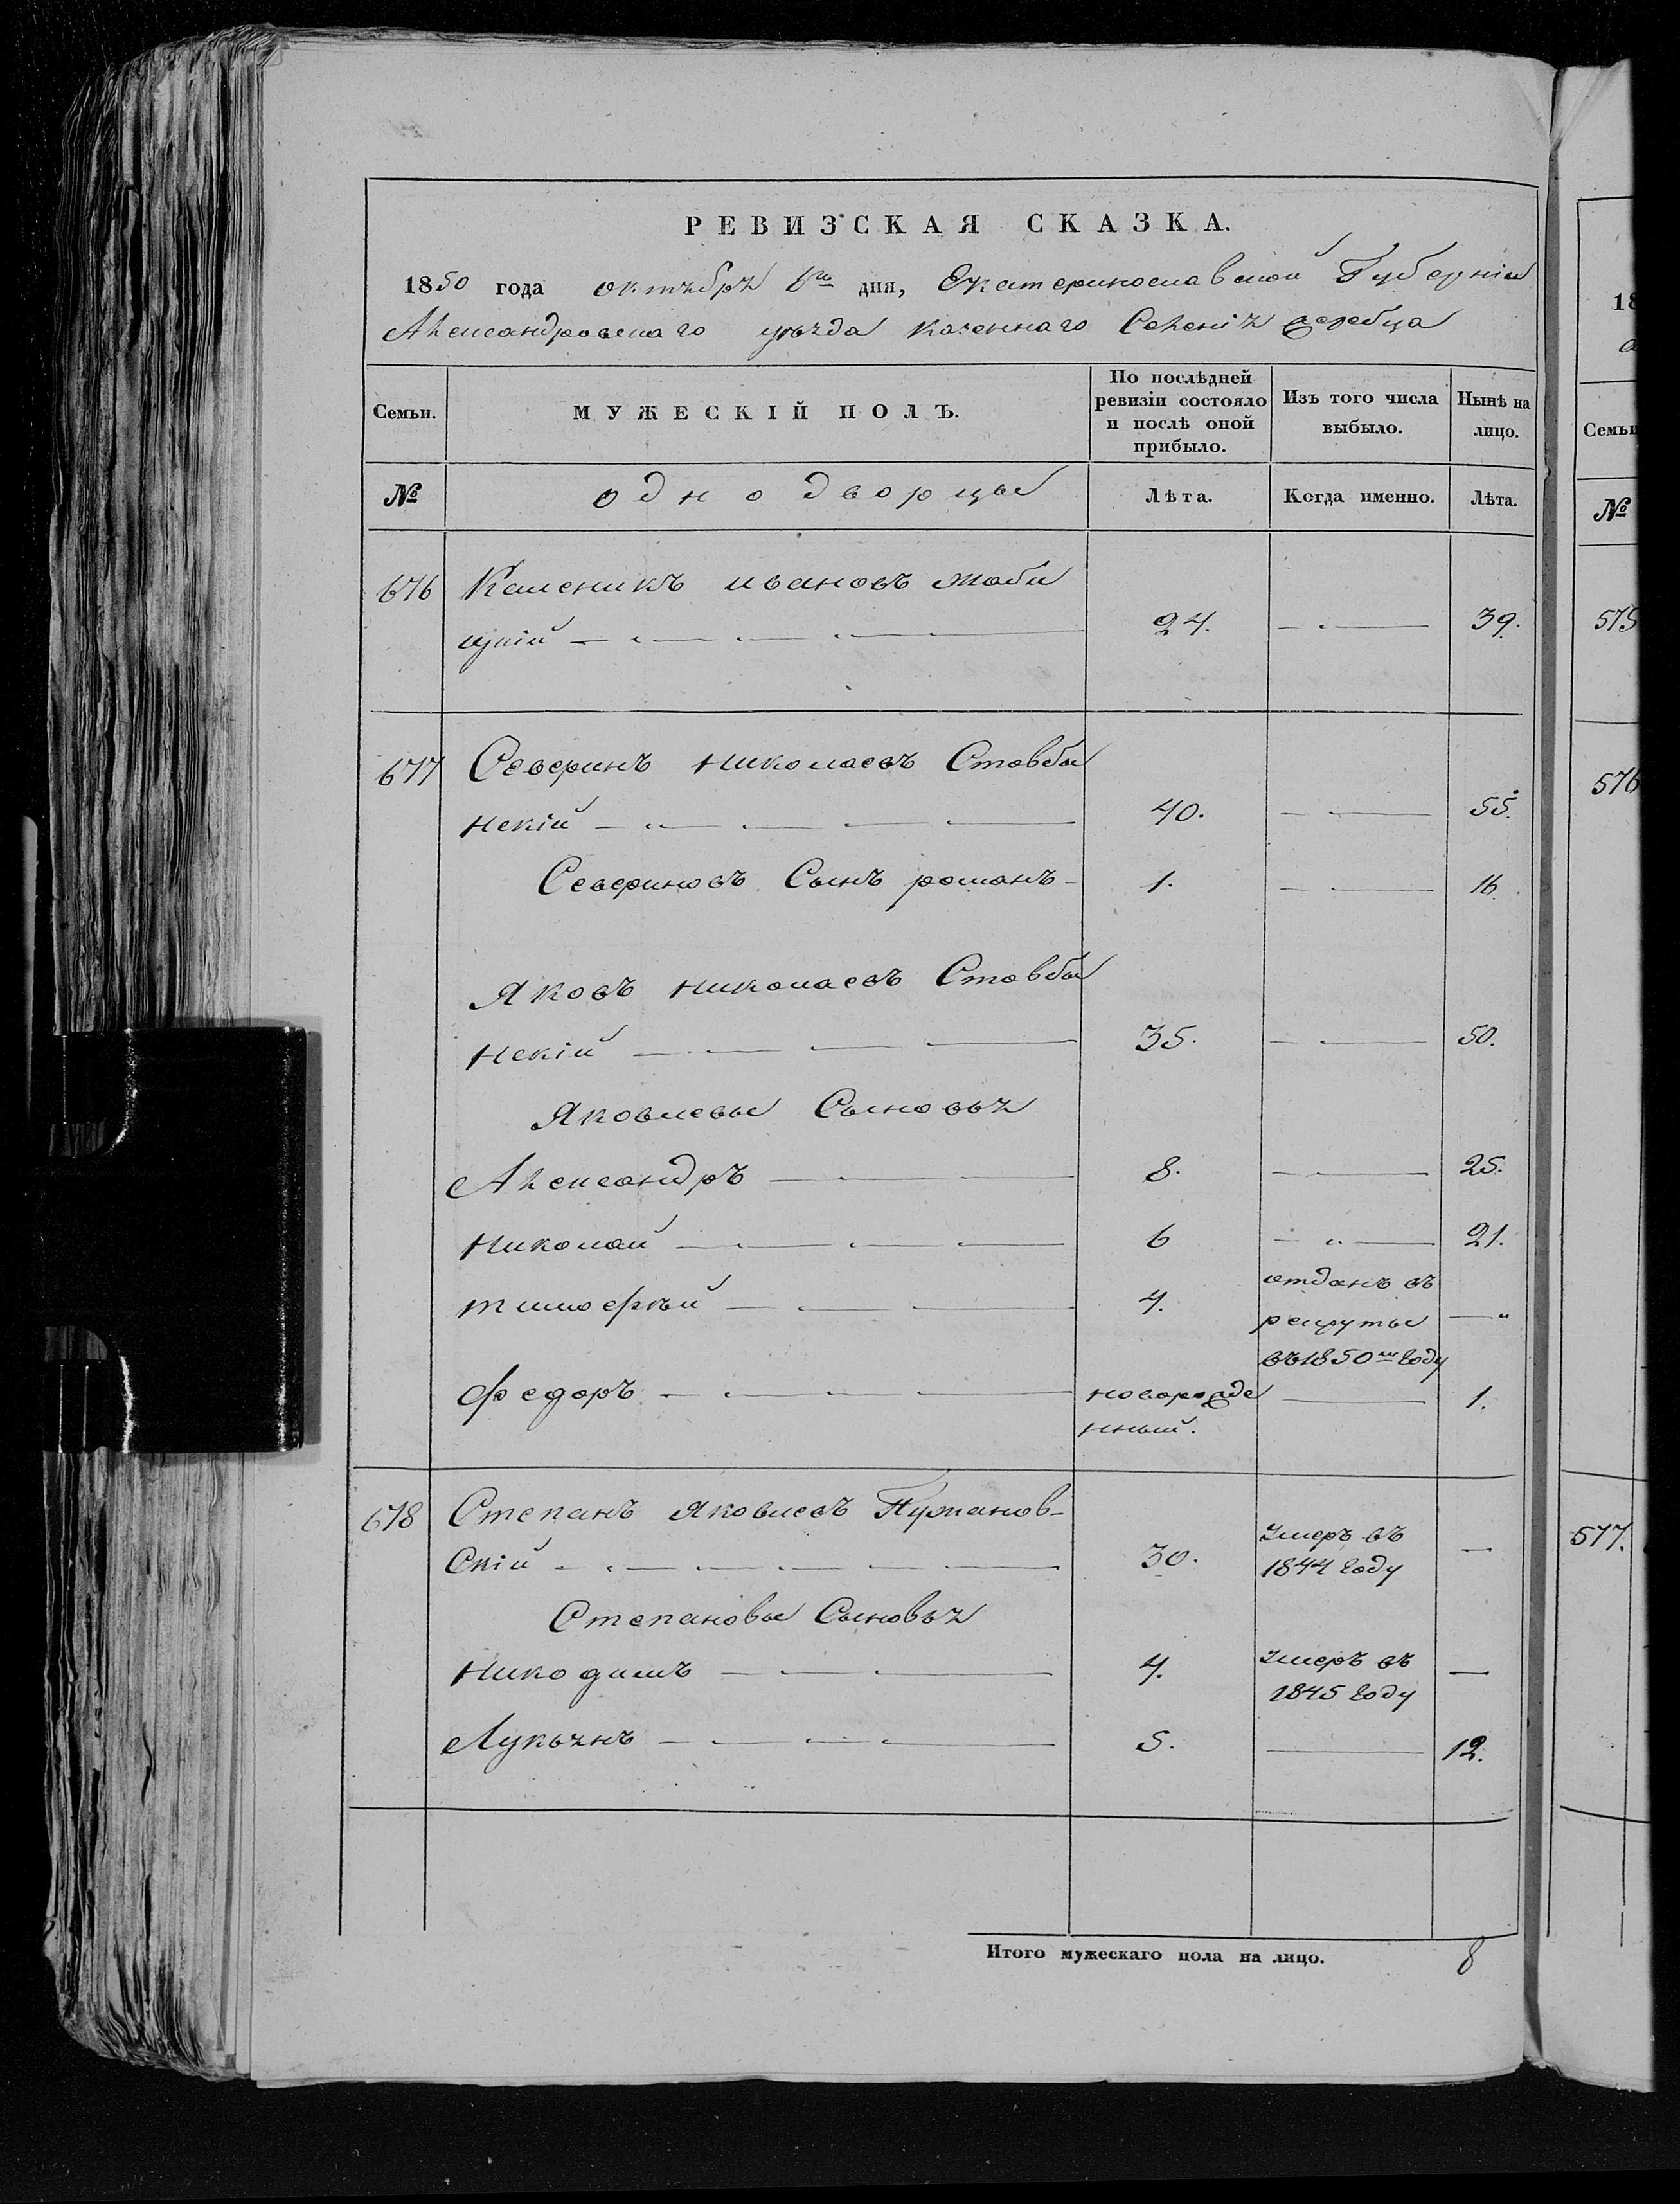 РЕВИЗСКАЯ СКАЗКА.
1850 года октября 6го дня, Екатеринославской Губерніи
Александровскаго уѣзда казеннаго Селенія Жеребца
Семьи. МУЖЕСКІЙ ПОЛЪ. По послѣдней ревизіи состояло и послѣ оной прибыло. Изъ того числа выбыло. Нынѣ на лицо.
№ однодворцы Лѣта. Когда именно. Лѣта.
676 Каленикъ ивановъ
цкій 24. 39.
677 Северинъ николаевъ Ставбы
нскій 40. 55.
Севериновъ Сынъ романъ 1. 16.
Яковъ николаевъ Ставбы
нскій 35. 50.
Яковлевы Сыновья
Александръ 8. 25.
николай 6 21.
тимофѣй 4. отданъ въ
рекруты
въ 1850м году
федоръ новорожде 1.
нный.
678 Степанъ яковлевъ
Скій 30. Умеръ въ
1844 году
Степановы Сыновья
никодимъ 4. Умеръ въ
1845 году
Лукьянъ 5. 12.
Итого мужескаго пола на лицо. 8
18
Семьи
№
575
576
577.